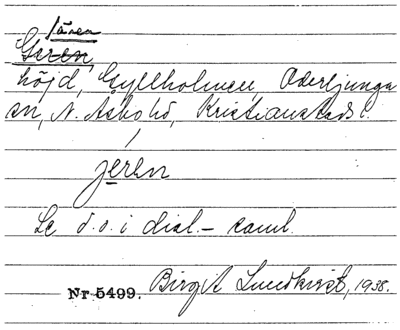 Jären
Geren
höjd, Gyllholmen, Oderljunga
sn, N. Åsbo hd, Kristianstads l.
jerən
Se d.o. i dial.-saml.
Nr 5499. Birgit Lundkvist, 1938.